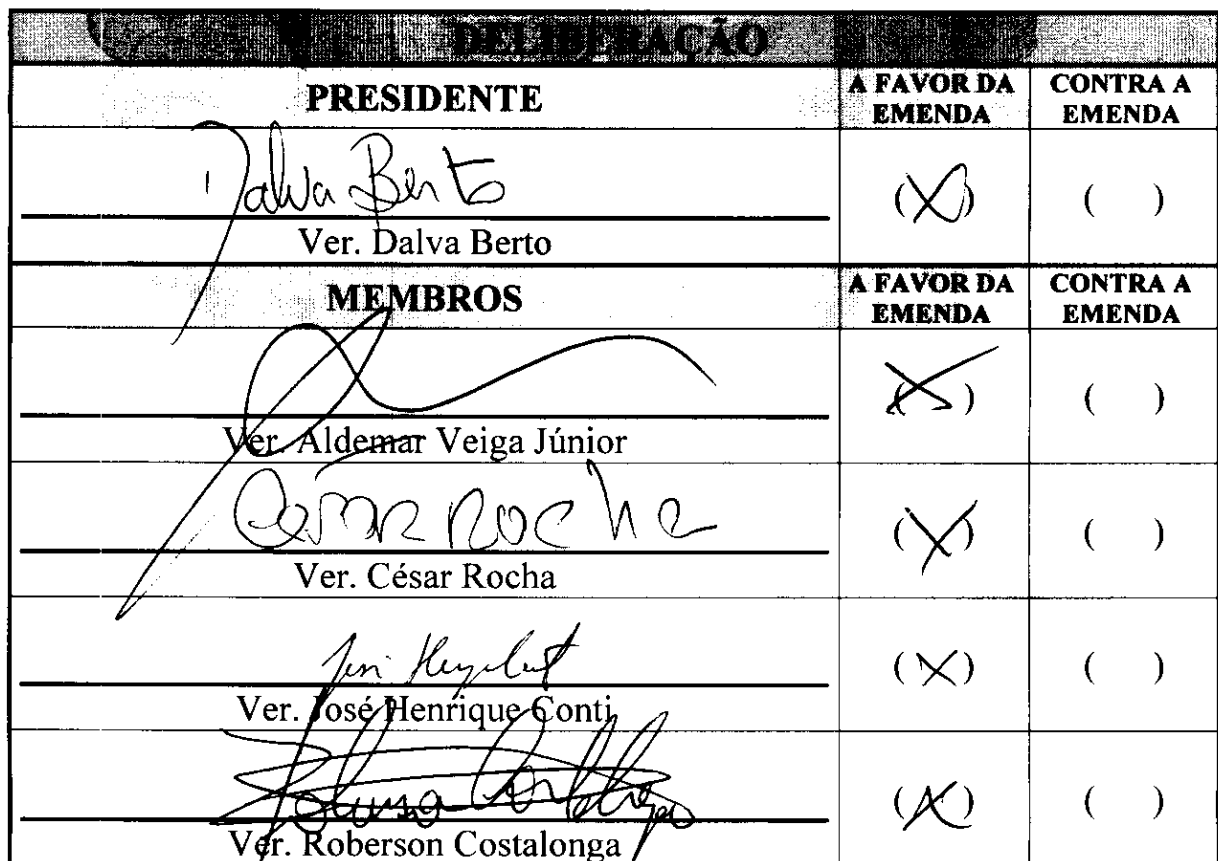 DELIBERAÇÃO
PRESIDENTE
A FAVOR DA EMENDA
CONTRA A EMENDA
Dalva Berto
(X)
( )
Ver. Dalva Berto
MEMBROS
A FAVOR DA EMENDA
CONTRA A EMENDA
(X)
( )
Ver. Aldemar Veiga Júnior
César Rocha
(X)
( )
Ver. César Rocha
(X)
( )
Ver. José Henrique Conti
(X)
( )
Ver. Roberson Costalonga